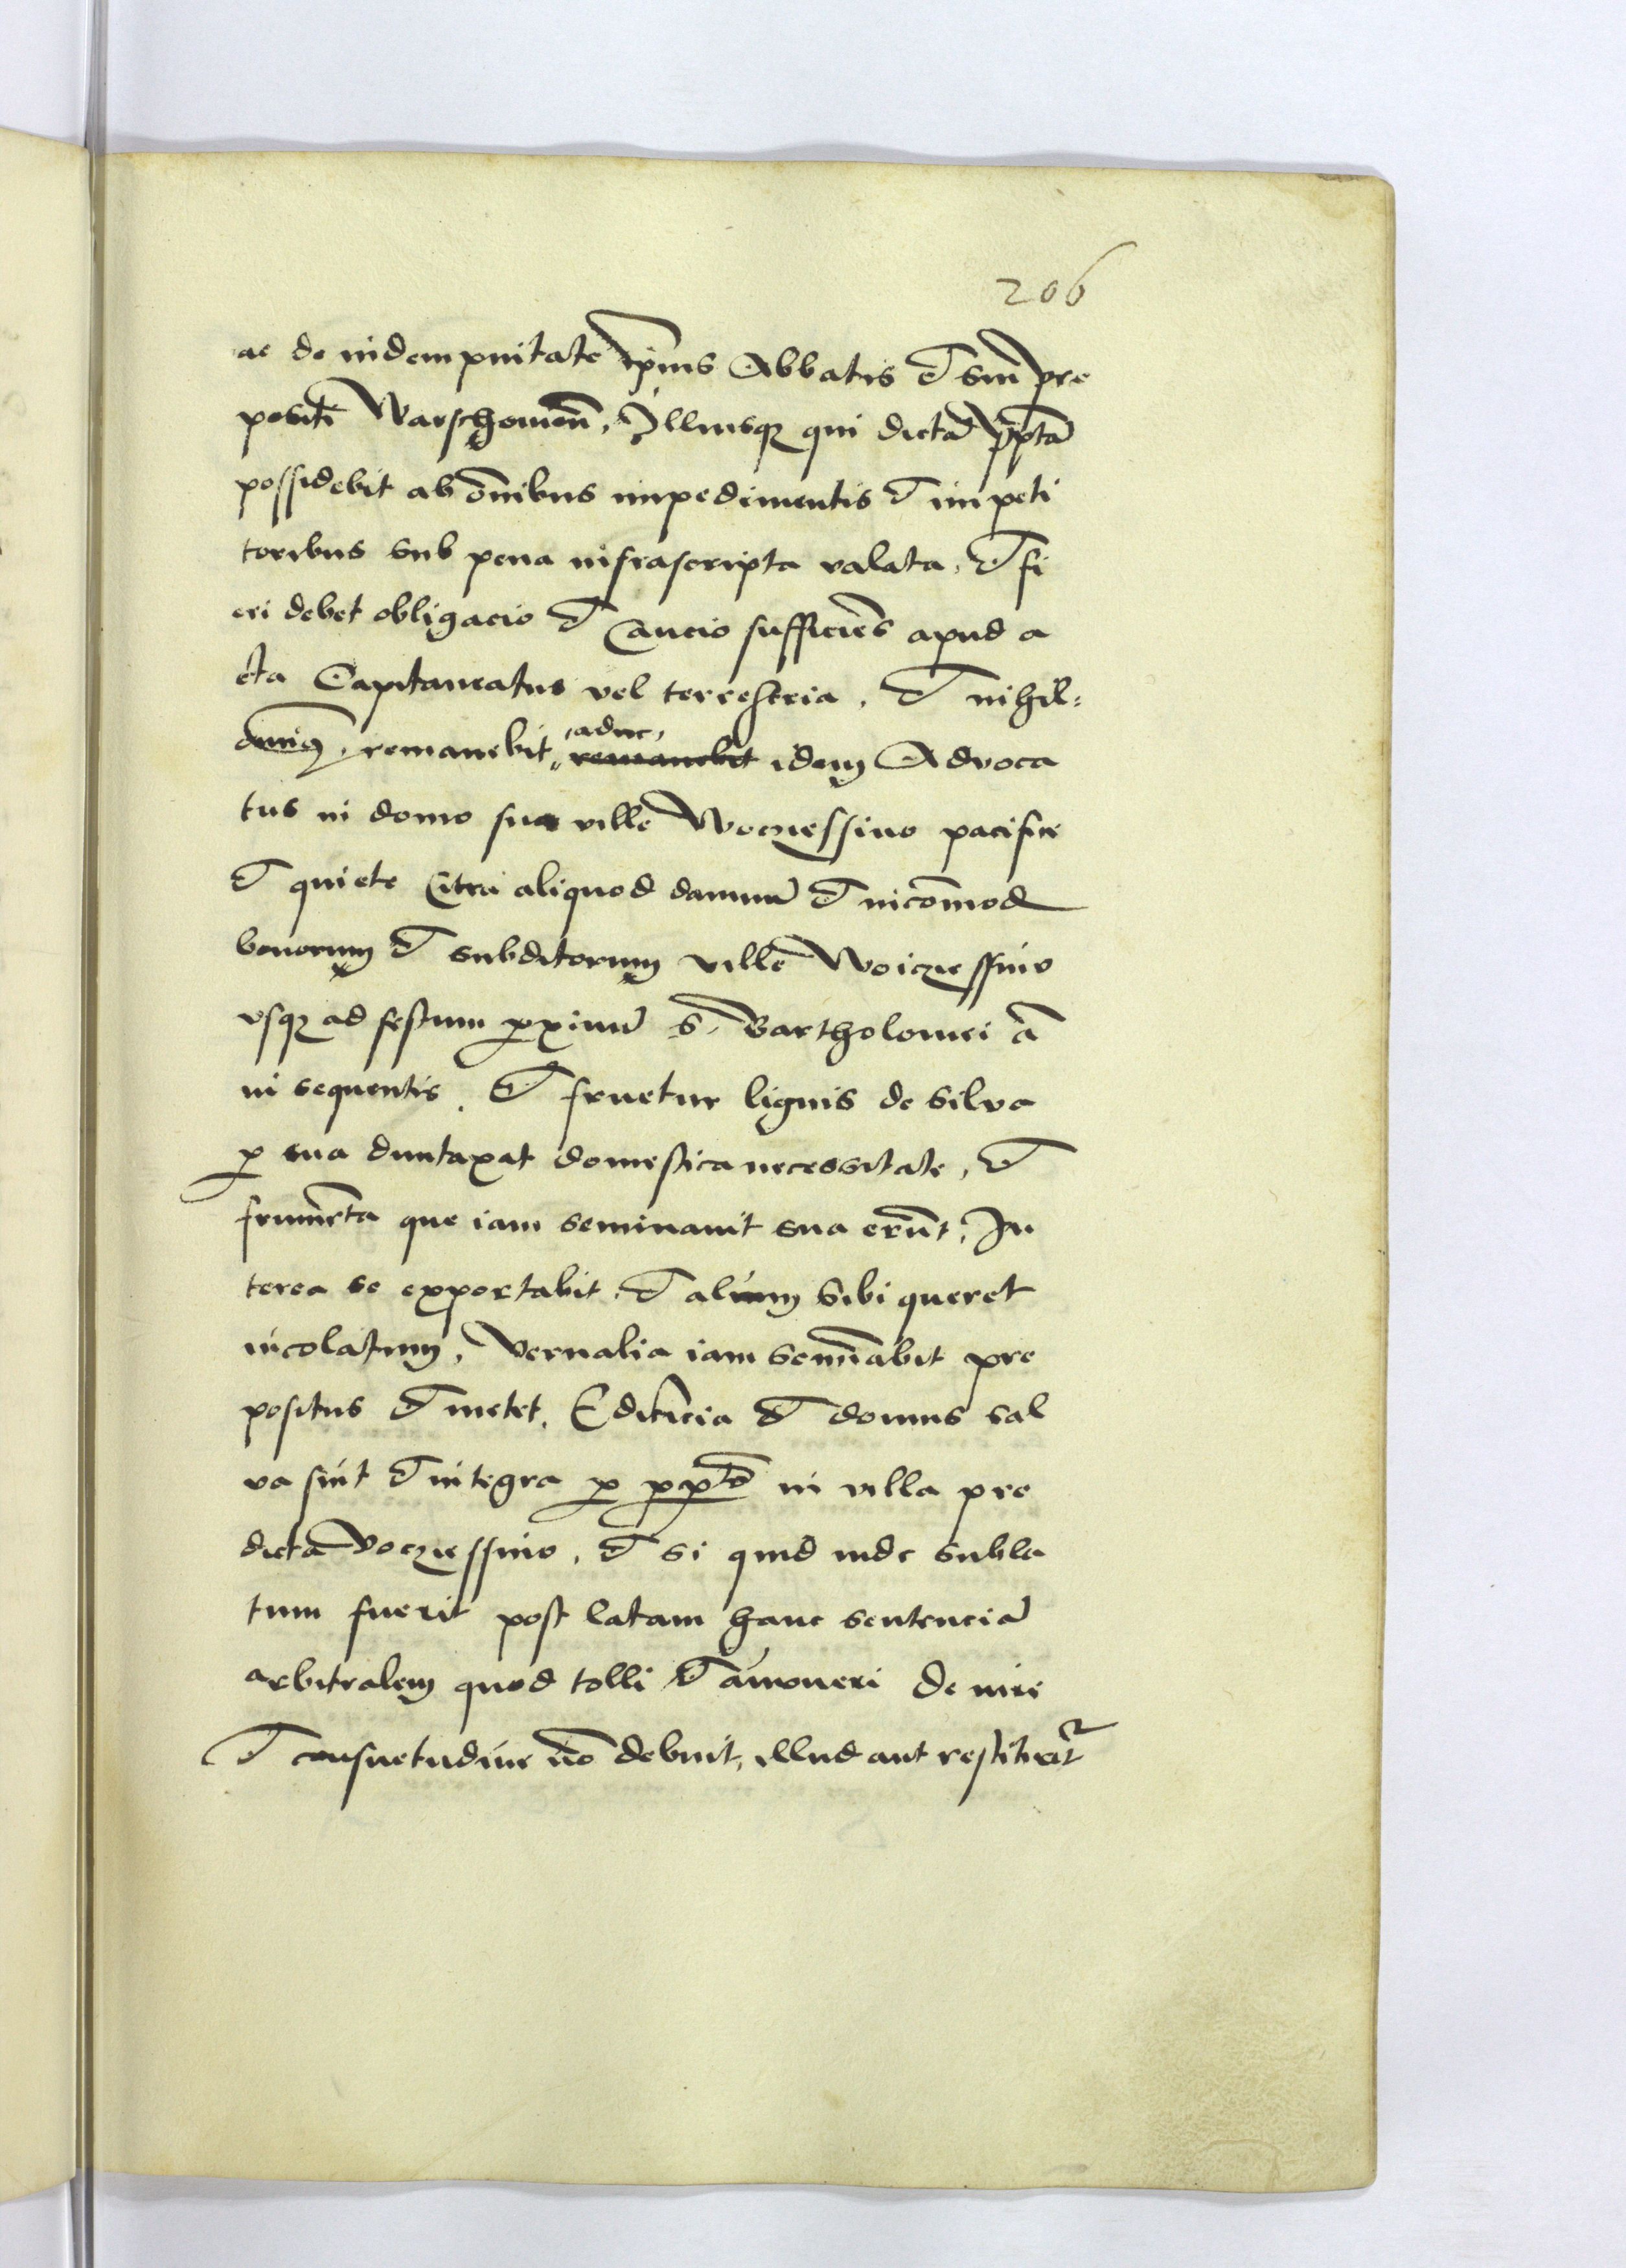 206
ac de indempnitate ip̄ius Abbatis et sui pre
positi Warschouien̄. Illiusq̢ qui dictā p̄ptā
possidebit ab om̄ibus impedimentis et impeti
toribus sub pena infrascripta valata. et fi
eri debet obligacio et Caucio sufficiēs apud a
cta Capitaneatus vel terrestria. et nihil=
ominꝯ. remanebit, adhuc, remanebit idem Advoca
tus in domo sua ville Woczessino pacifice
et quiete Citra aliquod damnū et incōmod
bonorum et subditorum ville Woiczessino
vsq̢ ad festum ꝓximū S. Bartholomei ā
ni sequentis. et fruetur lignis de silva
ꝓ sua duntaxat domestica necessitate, et
frumēta que iam seminauit sua erūt, In
terea se exportabit, et alium sibi queret
incolatum, Vernalia iam semīabit pre
positus et metet. Edificia et domus sal
va sint et integra ꝓ p̄pto in villa pre
dicta Voczessino, et si quid inde subla
tum fuerit post latam hanc sentenciā
arbitralem quod tolli et amoueri de iure
et consuetudine nō debuit, illud aut restituet᷑